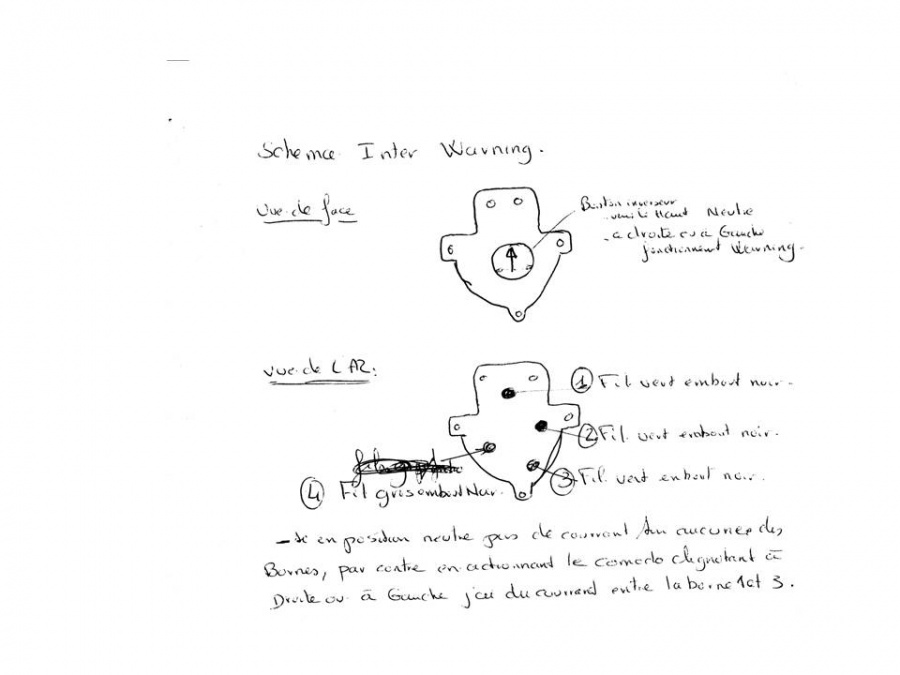 Schema Inter Warning.
Vue de face
Bouton inverseur
vers le Haut Neutre
- a droite ou a Gauche
fonctionnent Warning.
vue de L'AR:
1 Fil vert embout noir.
2 Fil vert embout noir.
3 Fil vert embout noir.
4 Fil gris embout Noir.
- si en position neutre pas de courrant sur aucunes des
Bornes, par contre en actionnant le comodo clignotant à
Droite ou à Gauche j'ai du courrant entre la borne 1 et 3.